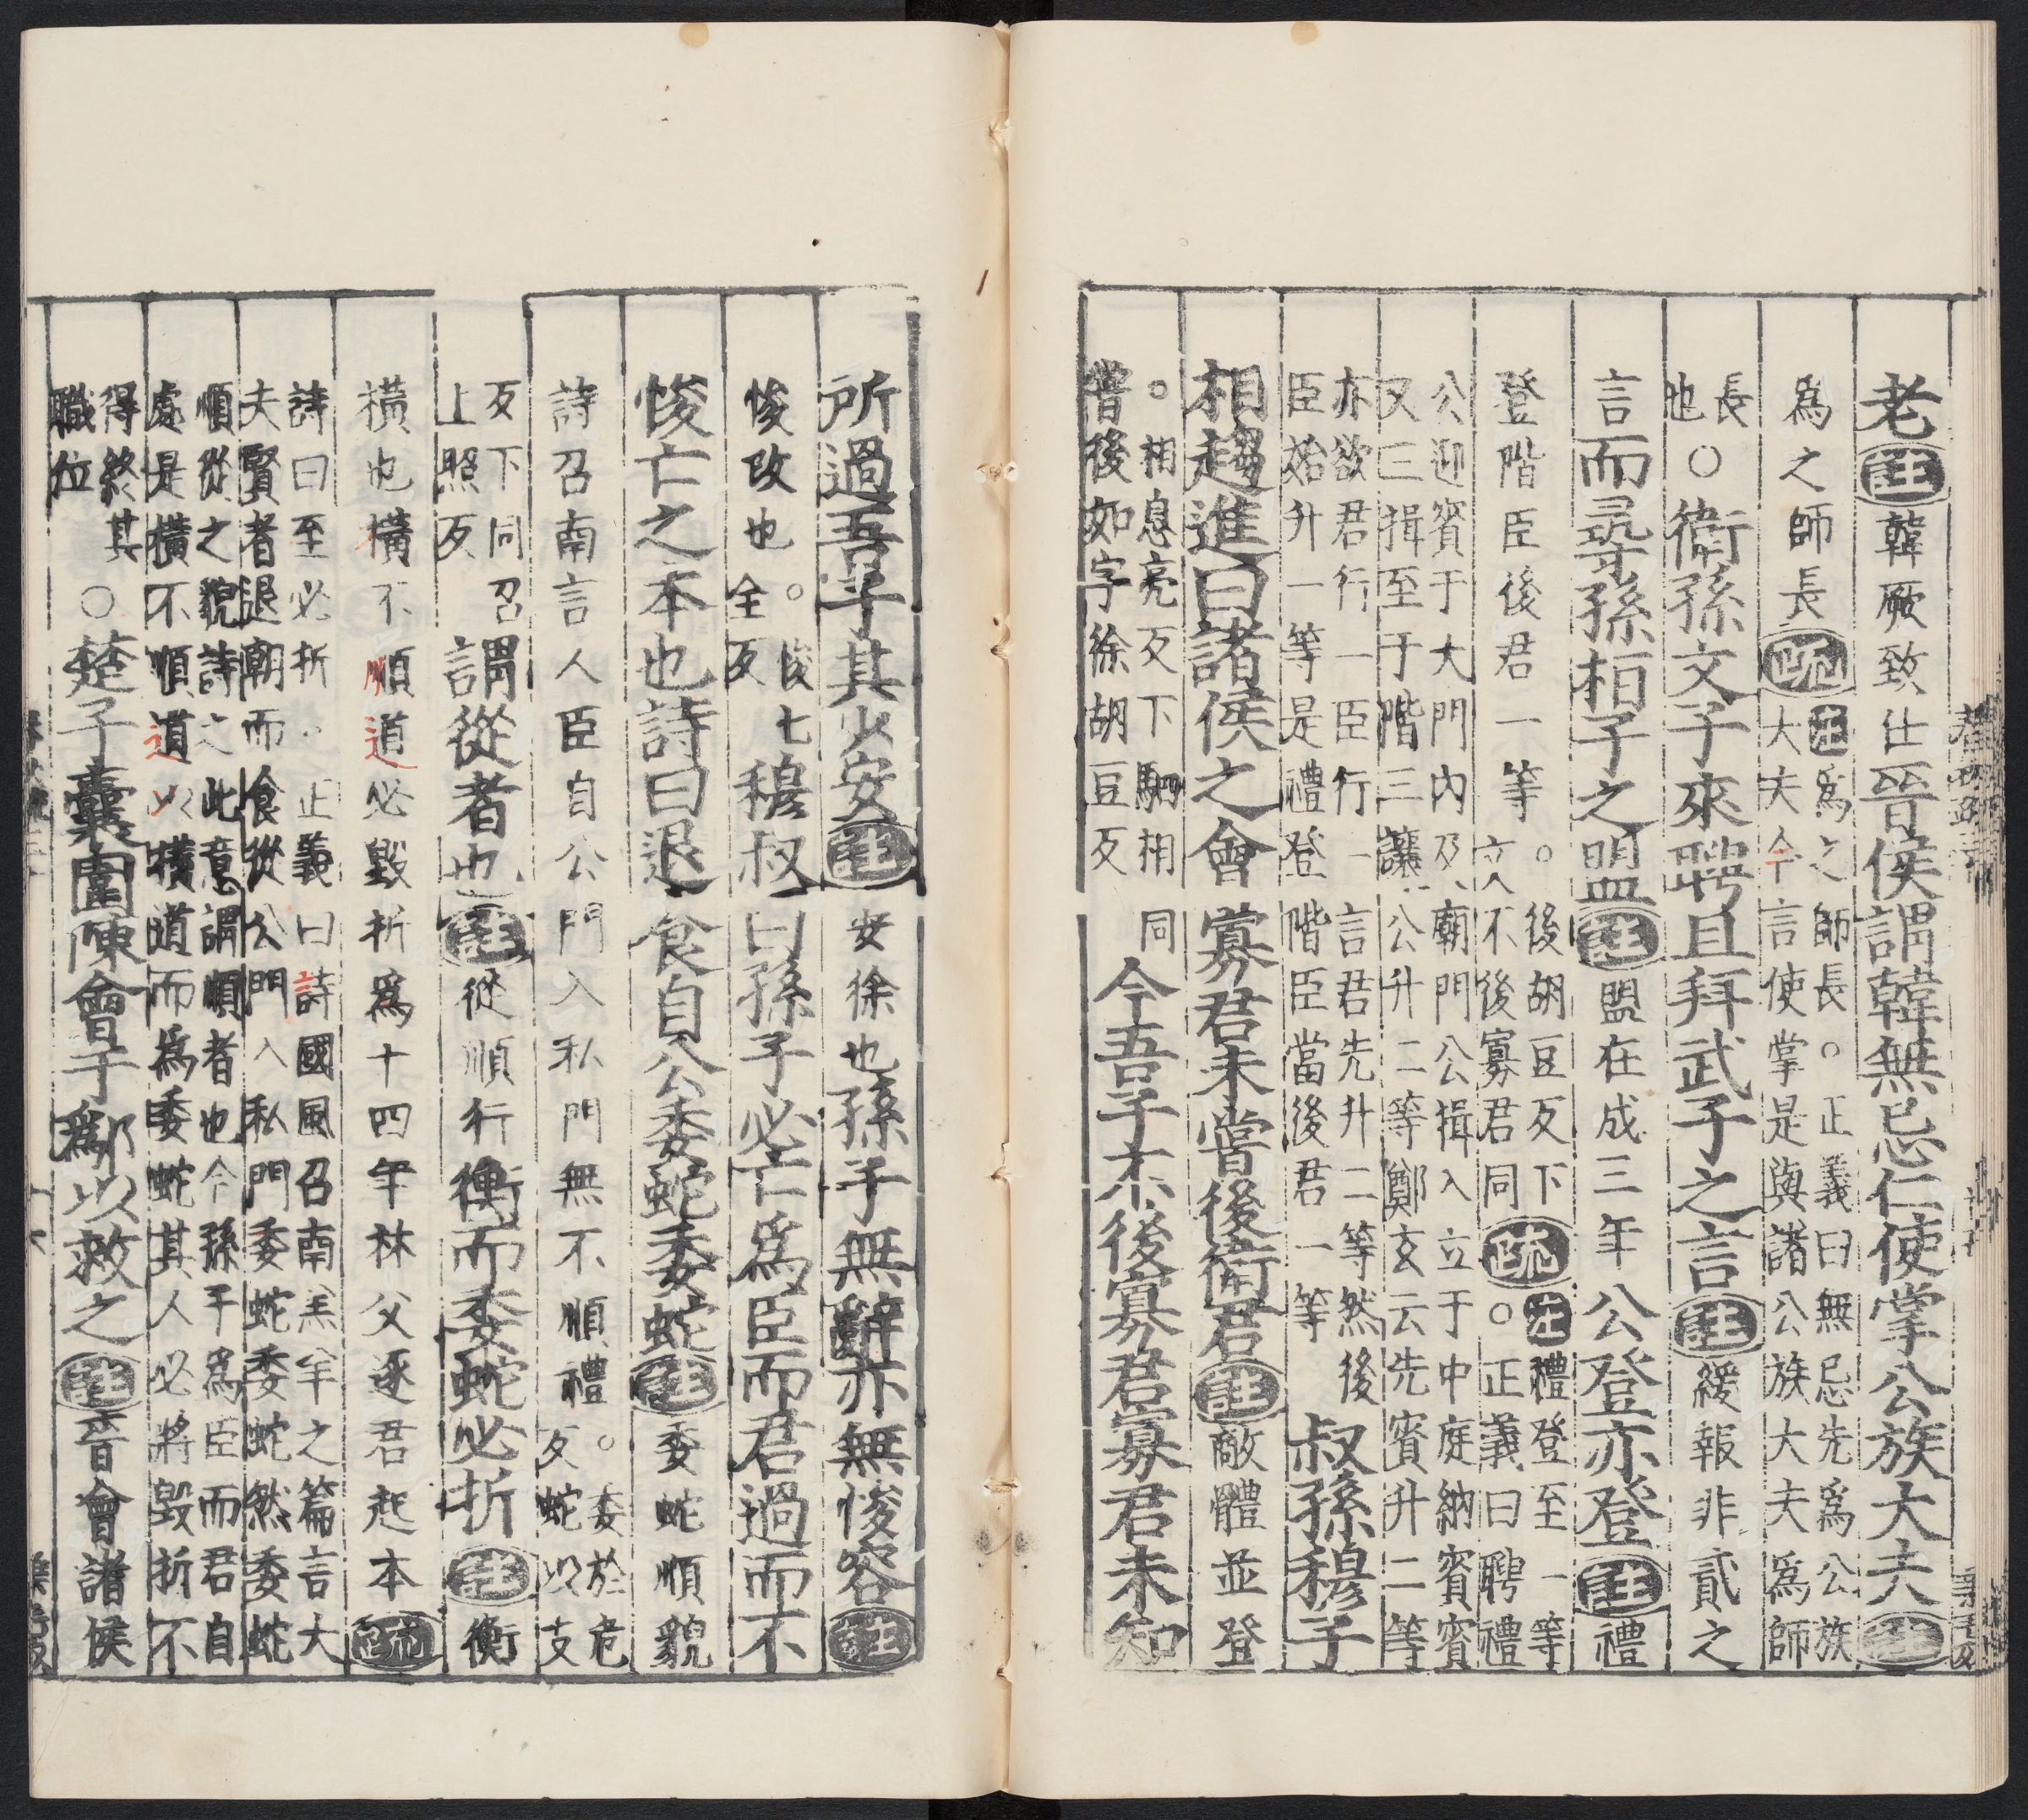 老註韓厥致仕晉侯謂韓無忌仁使掌公族大夫註
爲之師長疏注爲之師長○正義曰無忌先爲公族
大夫今言使掌是與諸公族大夫爲師
長
也○衛孫文子來聘且拜武子之言註緩報非貳之
言而尋孫桓子之盟註盟在成三年公登亦登註禮
登階臣後君一等○後胡豆反下
文不後寡君同疏注禮登至一等
○正義曰聘禮
公迎賓于大門內及廟門公揖入立于中庭納賓賓
又三揖至于階三讓公升二等鄭玄云先賓升二等
亦欲君行一臣行一言君先升二等然後
臣始升一等是禮登階臣當後君一等叔孫穆子
相趨進曰諸侯之會寡君未嘗後衛君註敵體並登
○相息亮反下駟相同
嘗後如字徐胡豆反今吾子不後寡君寡君未知
所過吾子其少安註安徐也孫子無辭亦無悛容註
悛改也○悛七
全反穆叔曰孫子必亡爲臣而君過而不
悛亡之本也詩曰退食自公委蛇委蛇註委蛇順貌
詩召南言人臣自公門入私門無不順禮○委於危
反蛇以支
反下同召
上照反謂從者也註從順行衡而委蛇必折註衡
橫也橫不順道必毀折爲十四年林父逐君起本疏
詩曰至必折○正義曰詩國風召南羔羊之篇言大
夫賢者退朝而食從公門入私門委蛇委蛇然委蛇
順從之貌詩之此意謂順者也今孫子爲臣而君自
處是橫不順道以橫道而爲委蛇其人必將毀折不
得終其
職位○楚子囊圍陳會于鄬以救之註晉會諸侯